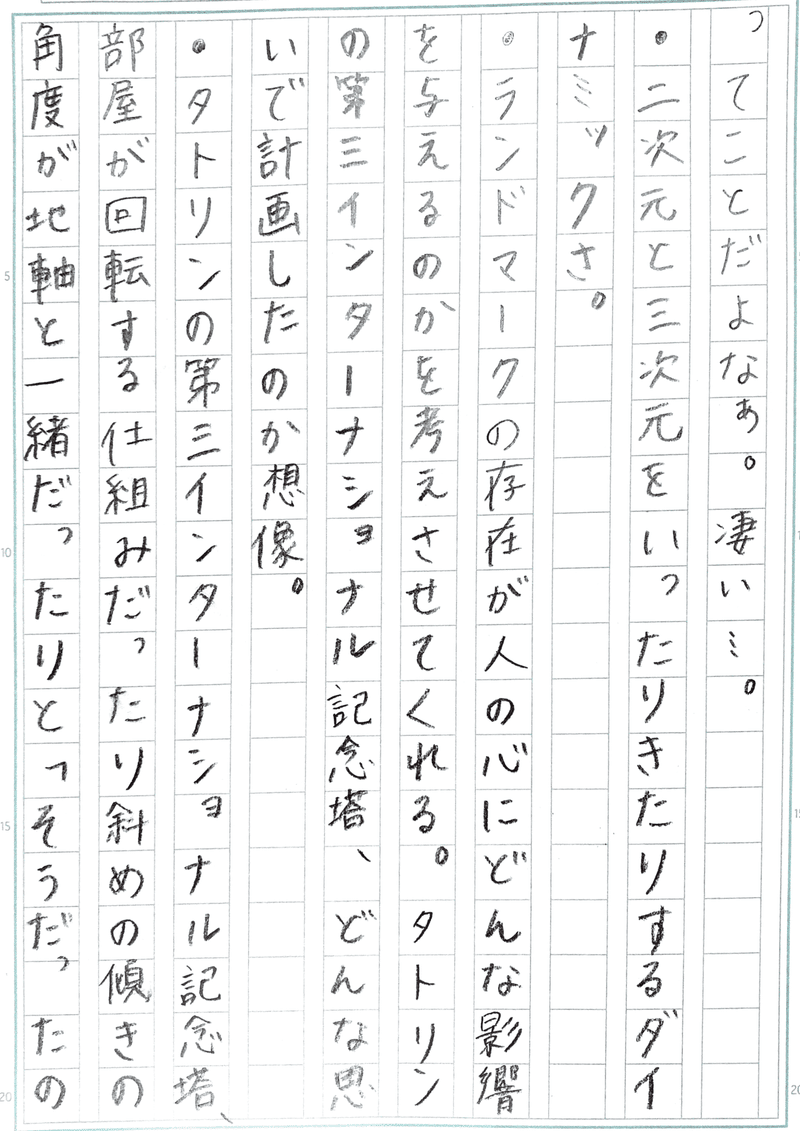 ってことだよなぁ。凄い…。
・二次元と三次元をいったりきたりするダイ
ナミックさ。
・ランドマークの存在が人の心にどんな影響
を与えるのかを考えさせてくれる。タトリン
の第三インターナショナル記念塔、どんな思
いで計画したのか想像。
・タトリンの第三インターナショナル記念塔、
部屋が回転する仕組みだったり斜めの傾きの
角度が地軸と一緒だったりとっそうだったの